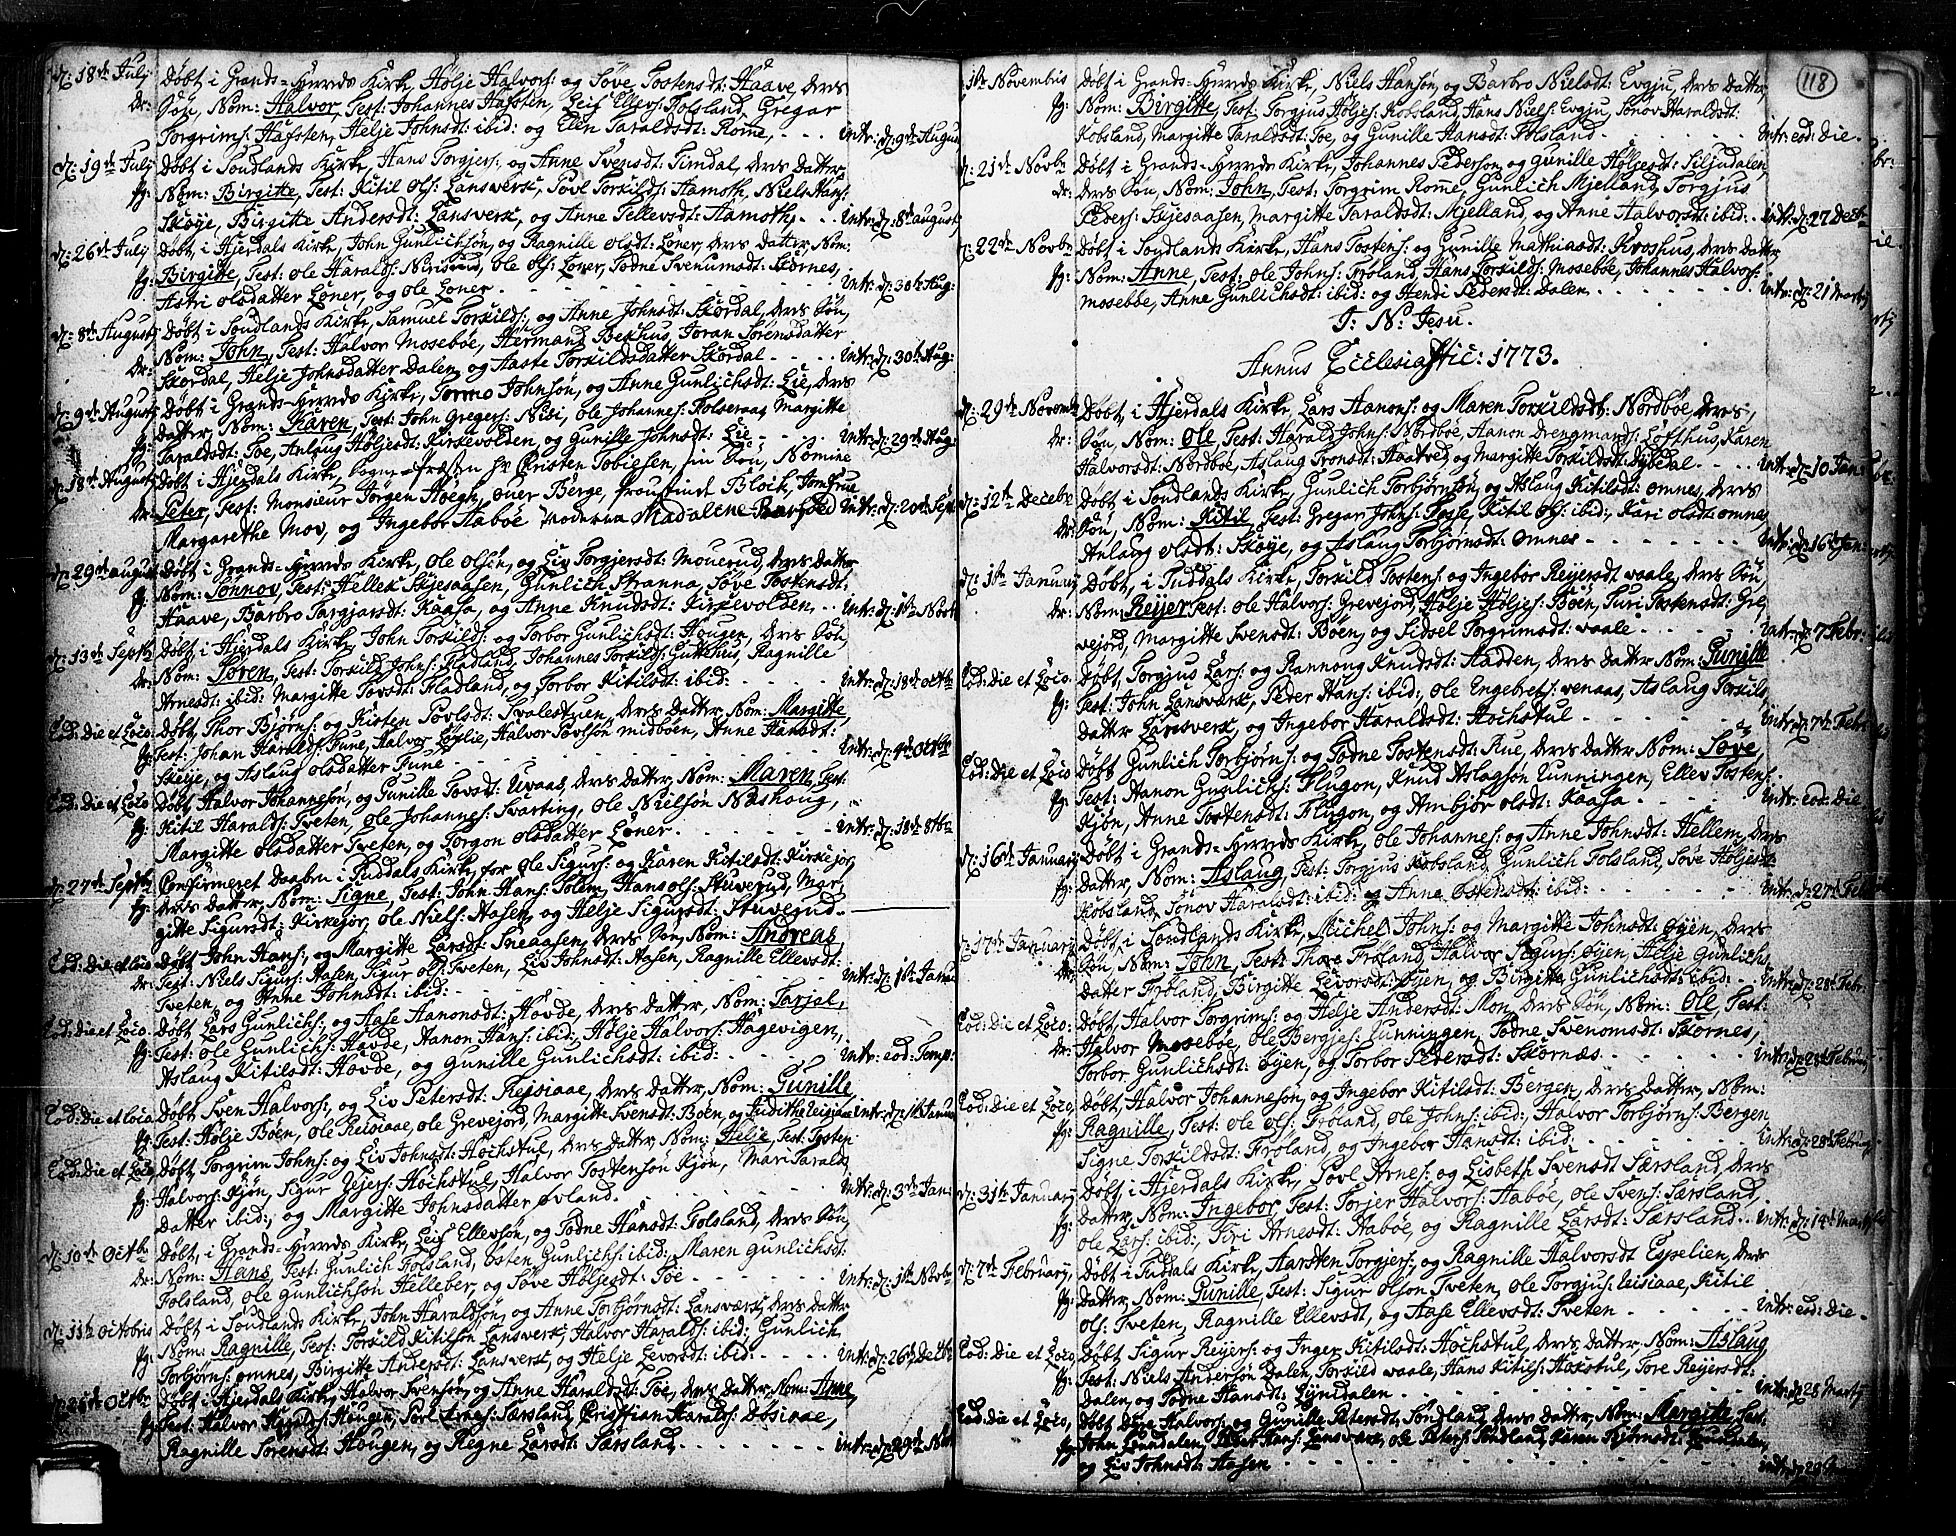 d: 18de July Døbt i Grands-Herreds Kirke, Hølje Halvors: og Søve Tostensdt: Haave, deres
dr: Søn, Nom: Halvor, Test: Johannes Hafsten, Leif Ellevs: Folsland, Gregar
Torgrims: Hafsten, Helje Johnsdt: ibid: og Ellen Taraldsdt: Rome, intr: d: 9de August
d: 19de July Døbt i Soudlands Kirke, Hans Torgjers: og Anne Svensdt: Timdal, deres Datter
pg: Nom: Birgitte, Test: Kitil Ols: Lansverk, Povl Torkilds: Aamoth, Niels Hans:
Skøje, Birgitte Andersdt: Lansverk, og Anne Tellevsdt: Aamoth, intr: d: 8de august
d: 26de July Døbt, i Hjerdals Kirke, John Gunlichsøn, og Ragnille olsdt: Løner, deres Datter, Nom:
pg: Birgitte, Test: ole Haralds: , ole ols: Løner, Todne Svenumsdt: Skornes,
Astri olsdatter Løner, og ole Løner intr: d: 30te Aug:
d: 8de August Døbt i Soudlands Kirke, Samuel Torkilds: og Anne Johnsdt: Skordal, deres Søn,
dr: Nom: John, Test: Halvor Mosebøe, Hermand Bekhus, Joran Sørensdatter
Skordal, Helje Johnsdatter Dalen, og Aaste Torkildsdatter Skordal intr: d: 30te Aug:
d: 9de August Døbt i Grands-Herreds Kirke, Tormo Johnsøn, og Anne Gunlichsdt: Lie, deres
pg: Datter, Nom: Karen, Test: John Gregers: Nisi, ole Johannes: Folseraas, Margitte
Taraldsdt: Toe, Anlaug Høljesdt: Kirkevolden, og Gunille Johnsdt: Lie intr: d: 29de Aug:
d: 18de August Døbt i Hjerdals Kirke, Sogne-Præsten Hr Christen Tobiesen, sin Søn, Nomine
dr: Peter, Test: Monsieur Jørgen Høegh, ouer Berge, Bloich, Jomfrue
Margarethe Mov, og Ingebor Aabøe Madalene intr: d: 20de Sept
d: 29de august Døbt i Grands-Herreds Kirke, Ole Olsøn, og Liv Torgjersdt: Mouerud, deres Datter
pg: Nom: Sønnov, Test: Hellek Skjesaasen, Gunlich Stranna, Søve Tostensdt:
Haave, Barbro Targjarsdt: Kaasa, og Anne Knudsdt: Kirkevolden, intr: d: 1te Novbr
d: 13de Septbr Døbt i Hjerdals Kirke, John Torkilds: og Torbor Gunlichsdt: Hougen, deres Søn,
dr: Nom: Søren, Test: Torkild Johns: Fladland, Johannes Torkilds: Gutehus, Ragnille
Arnesdt: ibid: Margitte Tovsdt: Fladland, og Torbor Kitilsdt: ibid: intr: d: 18de octbr
Eod: die et Loco: Døbt, Thor Bjørns: og Kisten Povlsdt: Svalestuen, deres Datter, Nom: Margitte,
pg: Test: Johan Haralds: Fune, Halvor Løylie, Halvor Povlsøn midbøen, Anne Hansdt:
Skøje, og Aslaug olsdatter Fune intr: d: 4de octbr
Eod: die et Loco Døbt Halvor Johannesøn, og Gunille Tovsdt: Uvaas, deres Datter, Nom: Maren, Test:
pg: Kitil Haralds: Tveten, ole Johannes: Svarting, ole Nielsøn Næshoug,
Margitte olsdatter Tveten, og Torgon olsdatter Løner intr: d: 18de 8tbr
d: 27de Septbr Confirmeret Daaben i Tuddals Kirke, for Ole Sigurs: og Karen Kitilsdt: Kirkejor,
pg: deres Datter, Nom: Signe, Test: John Hans: Solem, Hans ols: Stuverud, Mar-
gitte Sigursdt: Kirkejor, ole Niels: Aasen, og Helje Sigursdt: Stuverud
Eod: die et loco Døbt John Hans: og Margitte Larsdt: Sneaasen, deres Søn, Nom: Andreas,
dr: Test: Niels Sigurs: Aasen, Sigur ols: Tveten, Liv Johnsdt: Aasen, Ragnille Ellevsdt:
Tveten, og Anne Johnsdt: ibid: intr: d: 1te Janu
Eod: die et Loco: Døbt Lars Gunlichs: og Aase Aanonsdt: Hovde, deres Datter, Nom: Tarjal,
pg: Test: ole Gunlichs: Hovde, Aanon Hans: ibid: Hølje Halvors: Hagevigen,
Aslaug Kitilsdt: Hovde, og Gunille Gunlichsdt: ibid: intr: eod: Temp:
Eod: die et loco Døbt Sven Halvors: og Liv Petersdt: Reisiaae, deres Datter, Nom: Gunille
pg: Test: Hølje Bøen, ole Reisiaae, ole Grevejord, Margitte Svensdt: Bøen, og Judithe Leisiaae intr: d: 1te Januar
Eod: die et Loco, Døbt, Torgrim Johns: og Liv Johnsdt: Hochstul, deres Datter, Nom: Helje, Test: Tosten
pg: Halvors: Kjøn, Sigur Rejers: Hochstul, Halvor Tostensøn Kjøn, Mari Taralds
Datter ibid: og Margitte Johnsdatter øvland. intr: d: 3de Jan:
d: 10de Octbr Døbt, i Grands-Herreds Kirke, Leif Ellevsøn, og Todne Hansdt: Folsland, deres Søn,
dr: Nom: Hans, Test: Gunlich Folsland, Østen Gunlichs: ibid: Maren gunlichsdt:
Folsland, ole gunlichsøn Helleber, og Søve Høljesdt: Toe intr: d: 1te Novbr
d: 11te Octobris Døbt i Soudlands Kirke, John Haraldsøn, og Anne Torbjørnsdt: Lansværk, deres Datter
pg: Nom: Ragnille, Test: Torkild Kitilsøn Lansverk, Halvor Haralds: ibid: Gunlich
Torbjørns: omnes, Birgitte Andersdt: Lansverk, og Helje Levorsdt: ibid: intr: d: 26de Decbr
d: 25de Octbr Døbt i Hjerdals Kirke, Halvor Svensøn, og Anne Haraldsdt: Toe, deres Datter, Nom: Anne,
pg: Test: Halvor Haralds: Hougen, Povl Arnes: Særsland, Christian Haralds: Døsiaae,
Ragnille Sørensdt: Hougen, og Regne Larsdt: Særsland, intr: d: 29de Nov
118
1te Novembris Døbt i Grands-Herreds Kirke, Niels Hansøn, og Barbro Nielsdt: Evgju, deres Datter,
pg: Nom: Birgitte, Test: Torgjus Høljes: Kobsland, Hans Niels: Evgju, Sønov Haraldsdt:
Kobsland, Margitte Taraldsdt: Toe, og Gunille Hansdt: Folsland intr: eod: die
d: 21de Novbr Døbt i Grands-Herreds Kirke, Johannes Pedersøn, og Gunille Høljesdt: Siljudalen,
dr: deres Søn, Nom: John, Test: Torgrim Rome, Gunlich Mjelland, Torgjus
Peders: Skjesaasen, Margitte Taraldsdt: Mjelland, og Anne Halvorsdt: ibid: intr: d: 27 Decbr
d: 22de Novbr Døbt i Soudlands Kirke, Hans Tostens: og Gunille Mathiasdt: Kroshus, deres Datter
pg: Nom: Anne, Test: ole Johns: Frøland, Hans Torkilds: Mosebøe, Johannes Halvors:
mosebøe, Anne Gunlichsdt: ibid: og Hendi Pedersdt: Dalen intr: d: 21 Martij
I: N: Jesu.
Annus Ecclesiastic: 1773.
d: 29de Novembr Døbt, i Hjerdals Kirke, Lars Aanons: og Maren Torkildsdt: Nordbøe, deres,
dr: Søn, Nom: Ole, Test: Harald Johns: Nordbøe, Aanon Drengmands: Lofthus, Karen
Halvorsdt: Nordbøe, Aslaug Tronsdt: Haatved, og Margitte Torkildsdt: Dybedal intr: d: 10 Jan
d: 12te Decebr Døbt i Soudlands Kirke, Gunlich Torbjørnsøn, og Aslaug Kitilsdt: omnes, deres
dr: Søn, Nom: Kitil, Test: Gregar Johns: Fosse, Kitil Ols: ibid:, Kari olsdt: omnes,
Anlaug olsdt: Skøje, og Aslaug Torbjørnsdt: Omnes intr: d: 16de Jan:
d: 1te January Døbt, i Tuddals Kirke, Torkild Tostens: og Ingebor Reyersdt waale, deres Søn,
dr: Nom: Reyer, Test: ole Halvors: Grevejord, Hølje Høljes: Bøen, Turi Tostensdt: Gre,
vejord, Margitte Svensdt: Bøen, og Sidsel Torgrimsdt: waale intr: d: 7 Febr:
Eod: die et Loco Døbt, Torgjus Lars: og Rannoug Knudsdt: Hadden, deres Datter, Nom: Gunille
pg: Test: John Lansverk, Peder Hans: ibid:, ole Engebrets: wenaas, Aslaug Torkils
datter Lansverk, og Ingebor Haraldsdt: Hochstul intr: d: 7de Febr
Eod: die et Loco Døbt Gunlich Torbjørns: og Todne Tostensdt: Rue, deres Datter Nom: Søve,
pg: Test: Aanon Gunlichs: Flugon, Knud Aslagsøn Lunningen, Ellev Tostens:
Kjøn, Anne Tostensdt: Flugon, og Ambjør olsdt: Kaasa intr: eod: die
d: 16de January Døbt i Grands-Herreds Kirke, ole Johannes: og Anne Johnsdt: Hellem, deres
pg: Datter, Nom: Aslaug, Test: Torgjus Kobsland, Gunlich Folsland, Søve Høljesdt:
Kobsland, Sønov Haraldsdt: ibid: og Anne Østensdt: ibid: intr: d: 27de Feb
d: 17de January Døbt, i Soudlands Kirke, Michel Johns: og Margitte Johnsdt: Øyen, deres
dr: Søn, Nom: John, Test: Thore Frøland, Halvor Sigurs: øyen, Helje Gunlichs
Datter Frøland, Birgitte Levorsdt: øyen, og Birgitte Gunlichsdt: ibid: intr: d: 28de Febr:
Eod: die et Loco: Døbt, Halvor Torgrims: og Helje Andersdt: Mon, deres Søn, Nom: Ole, Test:
dr: Halvor Mosebøe, ole Bergjes: Lunningen, Todne Svenomsdt: Skornes,
Torbor Gunlichsdt: øyen, og Torbor Pedersdt: Skornæs intr: d: 28de Februar
Eod: die et Loco, Døbt, Halvor Johannesøn, og Ingebor Kitilsdt: Bergen, deres Datter, Nom:
pg: Ragnille, Test: ole ols: Frøland, ole Johns: ibid:, Halvor Torbjørns: Bergen,
Signe Torkildsdt: Frøland, og Ingebor Hansdt: ibid: intr: d: 28de Februar
d: 31te January Døbt i Hjerdals Kirke, Povl Arnes: og Lisbeth Svensdt Særsland, deres
pg: Datter, Nom: Ingebor, Test: Torjer Halvors: Aabøe, ole Svens: Særsland,
ole Lars: ibid:, Siri Arnesdt: Aabøe, og Ragnille Larsdt: Særsland intr: d: 14de Martij
d: 7de February, Døbt i Tuddals Kirke, Karsten Torgjers: og Ragnille Halvorsdt Espelien, deres
pg: Datter, Nom: Gunille, Test: Sigur Olson Tveten, ole Torgjus: Leisiaae, Kitil
ols: Tveten, Ragnille Ellevsdt, og Aase Ellevsdt: Tveten intr: eod: die
Eod: die et Loco Døbt Sigur Reyers: og Inger Kitilsdt: Hochstul, deres Datter, Nom: Aslaug
pg: Test: Niels Andersøn Dalen, Torkild waale, Hans Kitils: Hoxstul, Tore Reyersdt:
Dalen, og Todne Hansdt: Lyndalen intr: d: 28 Martij
Eod: die et Loco, Døbt Halvors: og Gunille Petersdt: Sondland, deres Datter, Nom: Margitte, Test:
pg: John Lundalen, Hans: Lansværk, ole Peters: Sondland, Karen Bjørnsdt: Lundalen,
og Liv Johnsdt: Aasen intr: d: 28